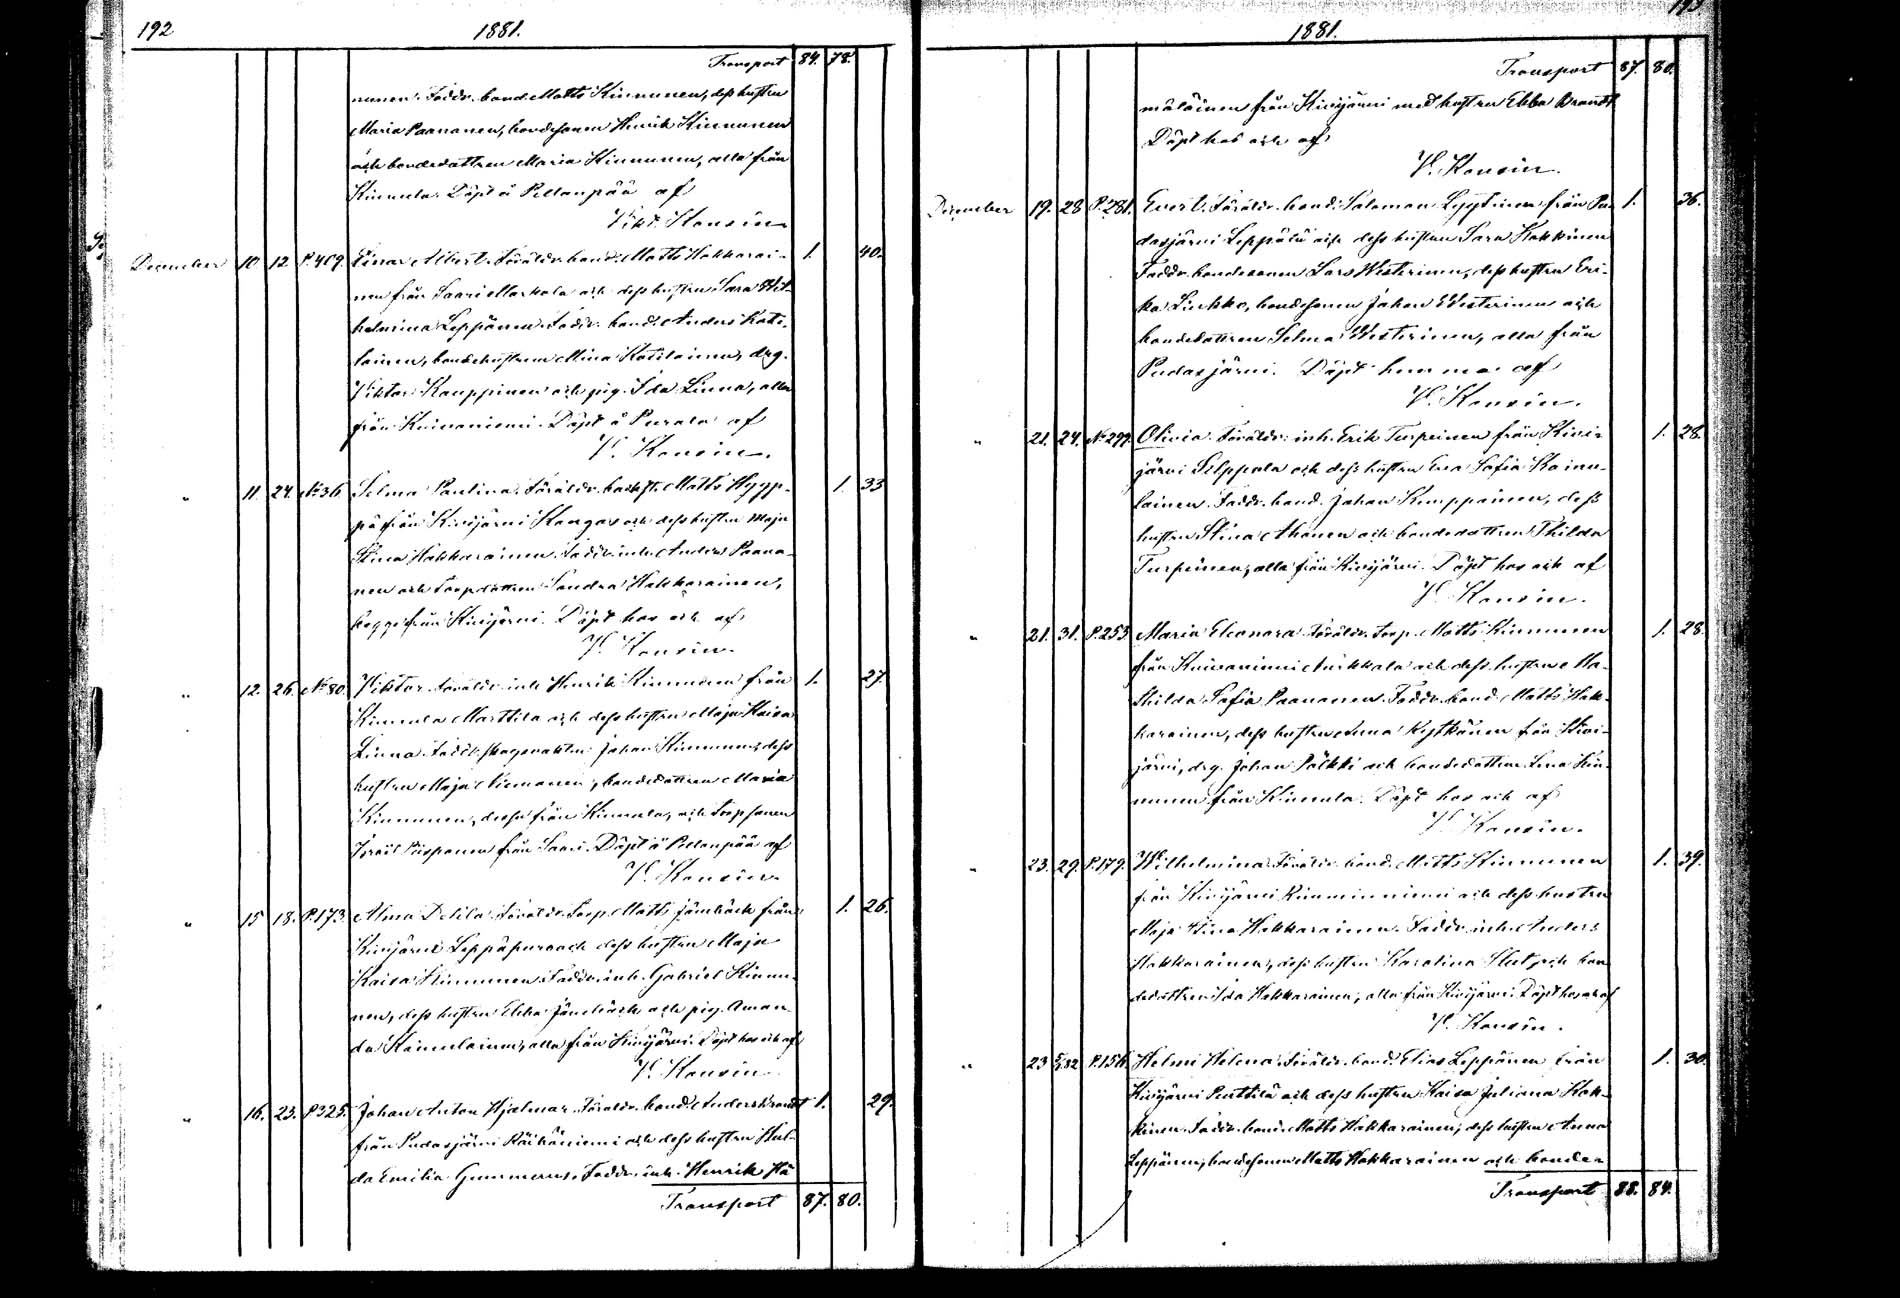 192 1881.
Transport 84. 78.
nunen. Fadd. bond. Matts Kinnunen, dess hustru
Maria Paananen, bondesonen Henrik Kinnunen
och bondedottren Maria Kinnunen, alla från
Kinnula. Döpt å Pellonpää af
Vikt. Konsin.
December 10 12 P. 409. Einar Albert. Föräldr. bond. Matts Hakkarai- 1. 40.
nen från Saari Markola och dess hustru Sara Wil-
helmina Leppänen. Fadd. bond. Anders Kati-
lainen, bondehustrun Mina Katilainen, drg.
Viktor Kauppinen och pig. Ida Linna, alla
från Kuivaniemi. Döpt å Purala af
V. Konsin.
" 11. 24. No 36 Selma Paulina. Föräldr. backst. Matts Hyyp- 1. 33
pä från Kivijärvi Kangas och dess hustru Maja
Stina Hakkarainen. Fadd. inh. Anders Paana-
nen och torpdottren Sandra Hakkarainen,
begge från Kivijärvi. Döpt hos och af
V. Konsin.
" 12. 26. No 80. Viktor. Föräldr. inh. Henrik Kinnunen från 1. 27.
Kinnula Marttila och dess hustru Maja Kaisa
Linna. Fadd. skogsvakten Johan Kinnunen, dess
hustru Maja Niemonen, bondedottren Maria
Kinnunen, dessa från Kinnula, och torpsonen
Israil Piispanen från Saari. Döpt å Pellonpää af
V. Konsin.
" 15 18. P. 173. Alma Delila. Föräldr. torp. Matts Jämbäck från 1. 26.
Kivijärvi Leppäpuro och dess hustru Maja
Kaisa Kinnunen. Fadd. inh. Gabriel Kinnu-
nen, dess hustru Ebba Jämbäck och pig. Aman-
da Kainulainen, alla från Kivijärvi. Döpt hos och af
V. Konsin.
" 16. 23. P. 325. Johan Anton Hjalmar. Föräldr. bond. Anders Brandt 1. 29.
från Pudasjärvi Räihäniemi och dess hustru Hul-
da Emilia Gummerus. Fadd. inh. Henrik Hä
Transport 87. 80.
193
1881.
Transport 87. 80.
mäläinen från Kivijärvi med hustru Ebba Brandt
Döpt hos och af
V. Konsin.
December 19. 28 P. 281. Evert. Föräldr. bond. Salomon Lyytinen från Pu- 1. 36.
dasjärvi Leppälä och dess hustru Sara Kokkinen
Fadd. bondesonen Lars Westerinen, dess hustru Eri-
ka Linkko, bondesonen Johan Westerinen och
bondedottren Selma Westerinen, alla från
Pudasjärvi. Döpt hemma af
V. Konsin.
" 21. 24. No 299. Olivia. Föräldr. inh. Erik Turpeinen från Kivi- 1. 28.
järvi Selppola och dess hustru Eva Sofia Kainu-
lainen. Fadd. bond. Johan Kumppainen, dess
hustru Stina Ahonen och bondedottren Thilda
Turpeinen, alla från Kivijärvi. Döpt hos och af
V. Konsin.
" 21. 31. P. 253 Maria Eleonora. Föräldr. torp. Matts Kinnunen 1. 28.
från Kuivaniemi Anikkala och dess hustru Ma-
thilda Sofia Paananen. Fadd. bond. Matts Hak-
karainen, dess hustru Anna Kytkönen från Kivi-
järvi, drg. Johan Pölkki och bondedottren Lena Kin-
nunen från Kinnula. Döpt hos och af
V. Konsin.
" 23. 29. P. 179. Wilhelmina. Föräldr. bond. Matts Kinnunen 1. 39.
från Kivijärvi Kinniniemi och dess hustru
Maja Stina Hakkarainen. Fadd. inh. Anders
Hakkarainen, dess hustru Karolina Slut, och bon
dedottren Ida Hakkarainen, alla från Kivijärvi. Döpt hos och af
V. Konsin.
" 23 82 P. 156. Helmi Helena. Föräldr. bond. Elias Leppänen från 1. 30.
Kivijärvi Penttilä och dess hustru Kaisa Juliana Kok-
kinen. Fadd. bond. Matts Hakkarainen, dess hustru Anna
Leppänen, bondesonen Matts Hakkarainen och bonden
Transport 88. 84.